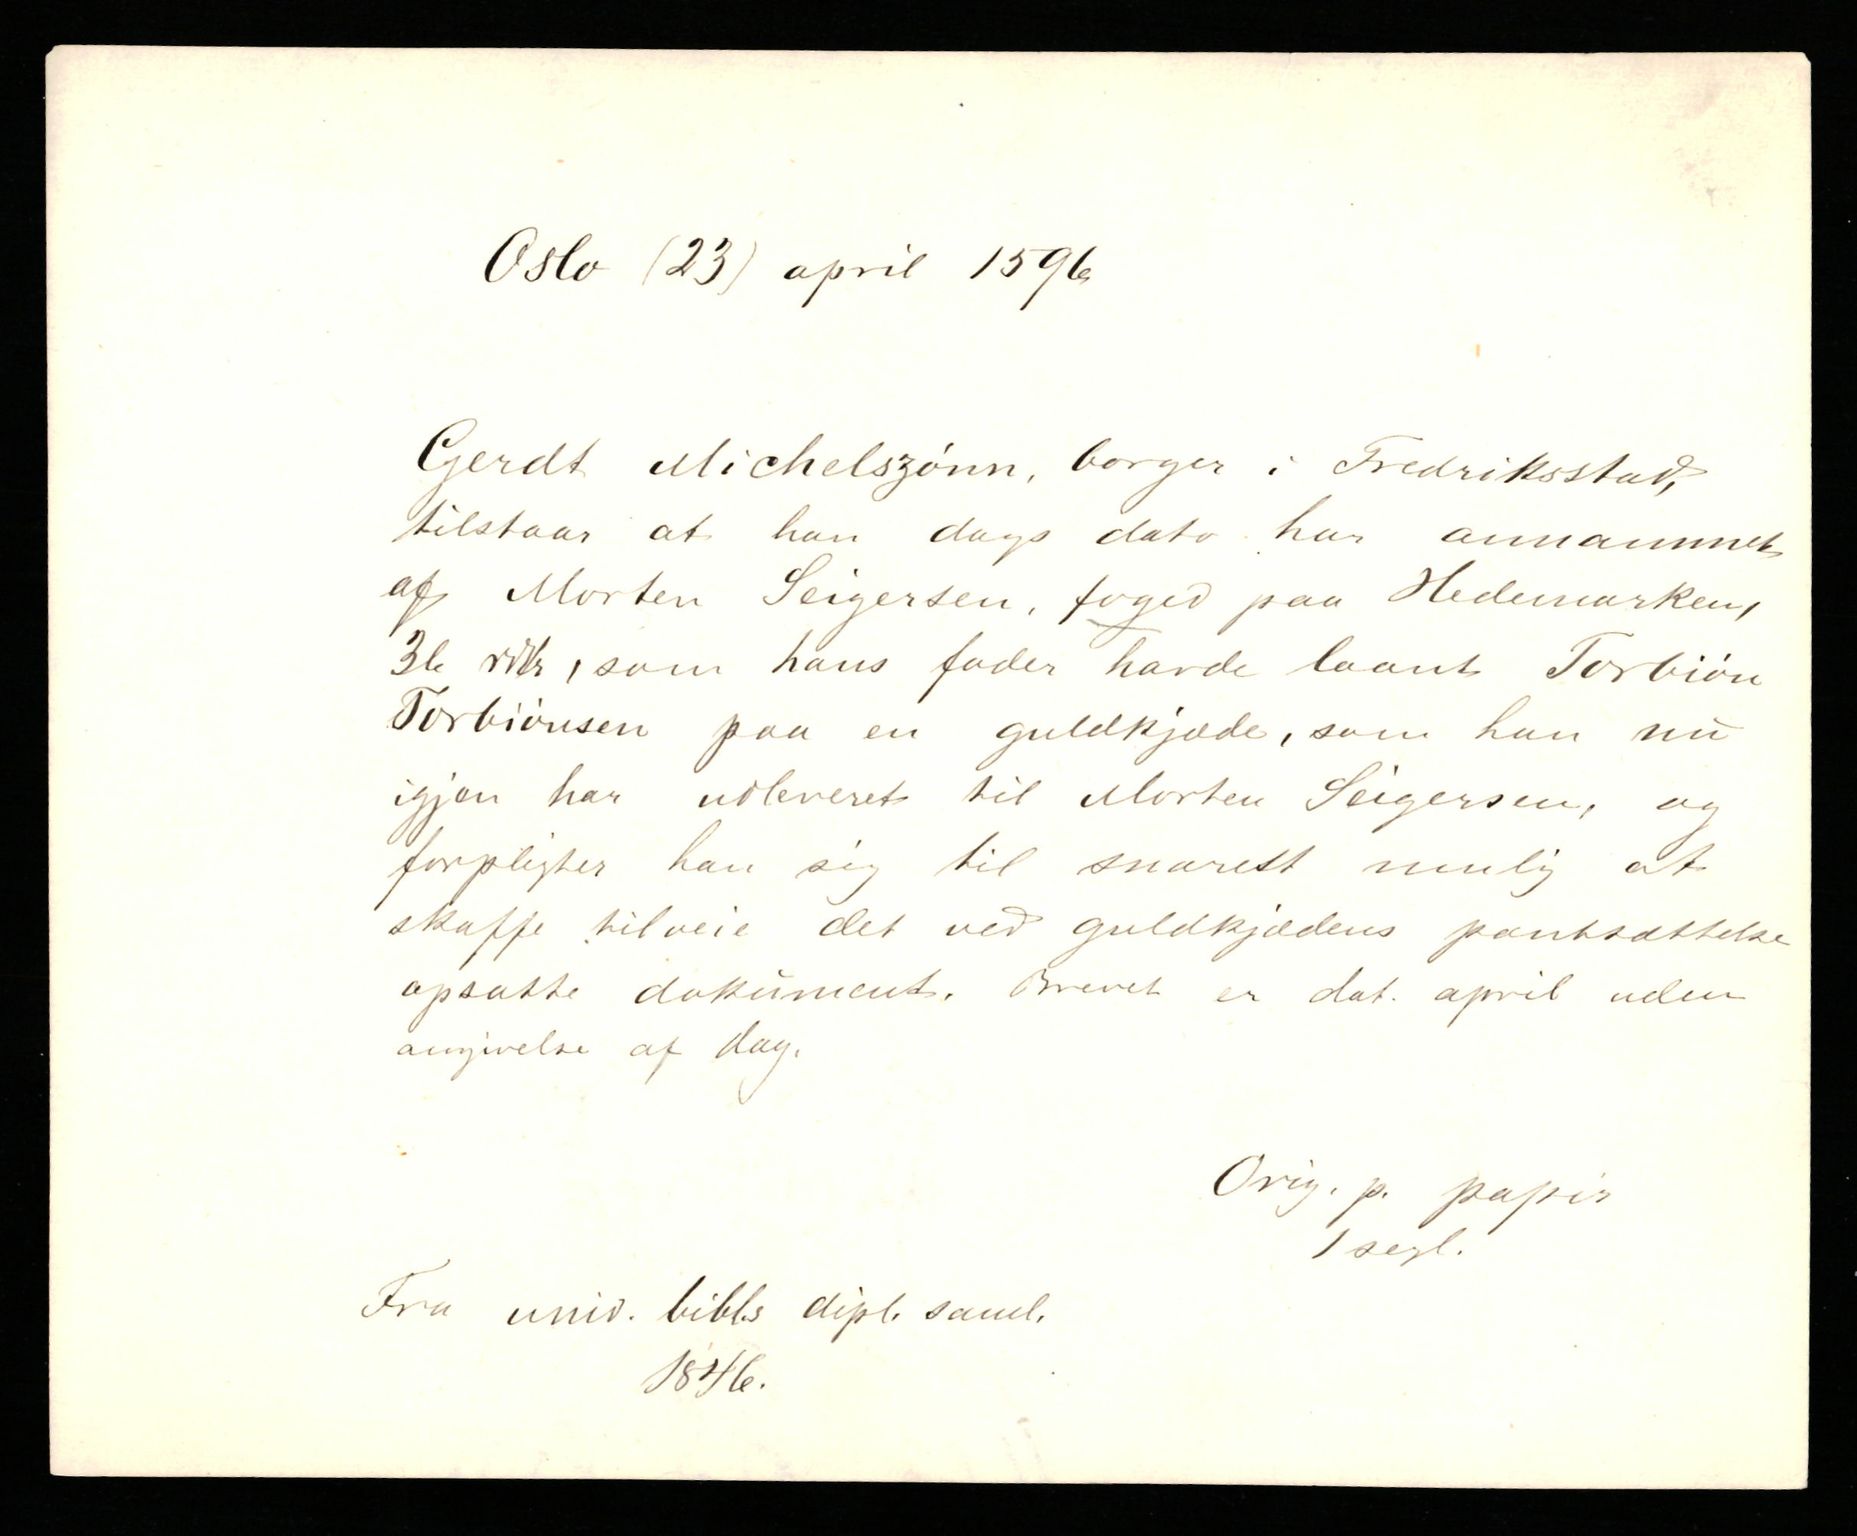 Oslo (23) april 1596
Gerdt Michelszónn, borger i Fredriksstad,
tilstaar at han dags dato har annammet
af Morten Seigersen, foged paa Hedemarken,
36 rdlr, som hans fader havde laant Torbión
Torbiónsen paa en guldkjæde, som han nu
igjen har udleveret til Morten Seigersen, og
forpligter han sig til snarest mulig at
skaffe tilveie det ved guldkjædens pantsættelse
opsatte dokument. Brevet er dat. april uden
angivelse af dag.
Orig. p. papir
1 segl.
Fra univ. bibl.s dipl. saml.
1846.